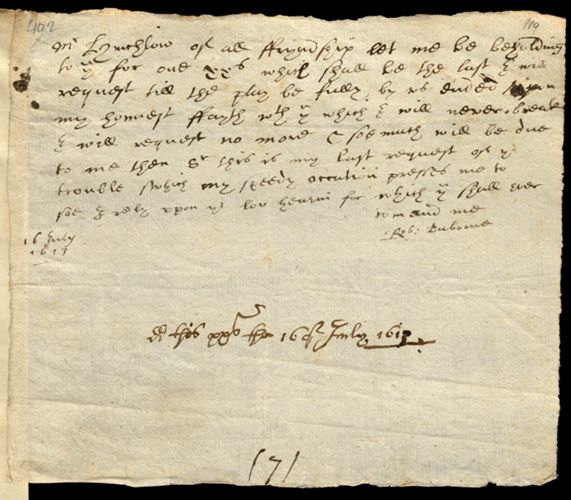 402
110
mr Hynchlow of all ffryndship let me be beholding
to yu for one xxs which shall be the last I will
request till the play be fully by vs ended vpon
my honnest ffayth wth yu which I will never breake
I will request no more & soe much will be due
to me then Sr this is my last request of yr
trouble which my speedy occation presses me to
soe I rely vpon yr lov heerin for which yu shall ever
comand me
Rob: Daborne
16 July
1613
dd this xxs the 16 of July 1613
/7/